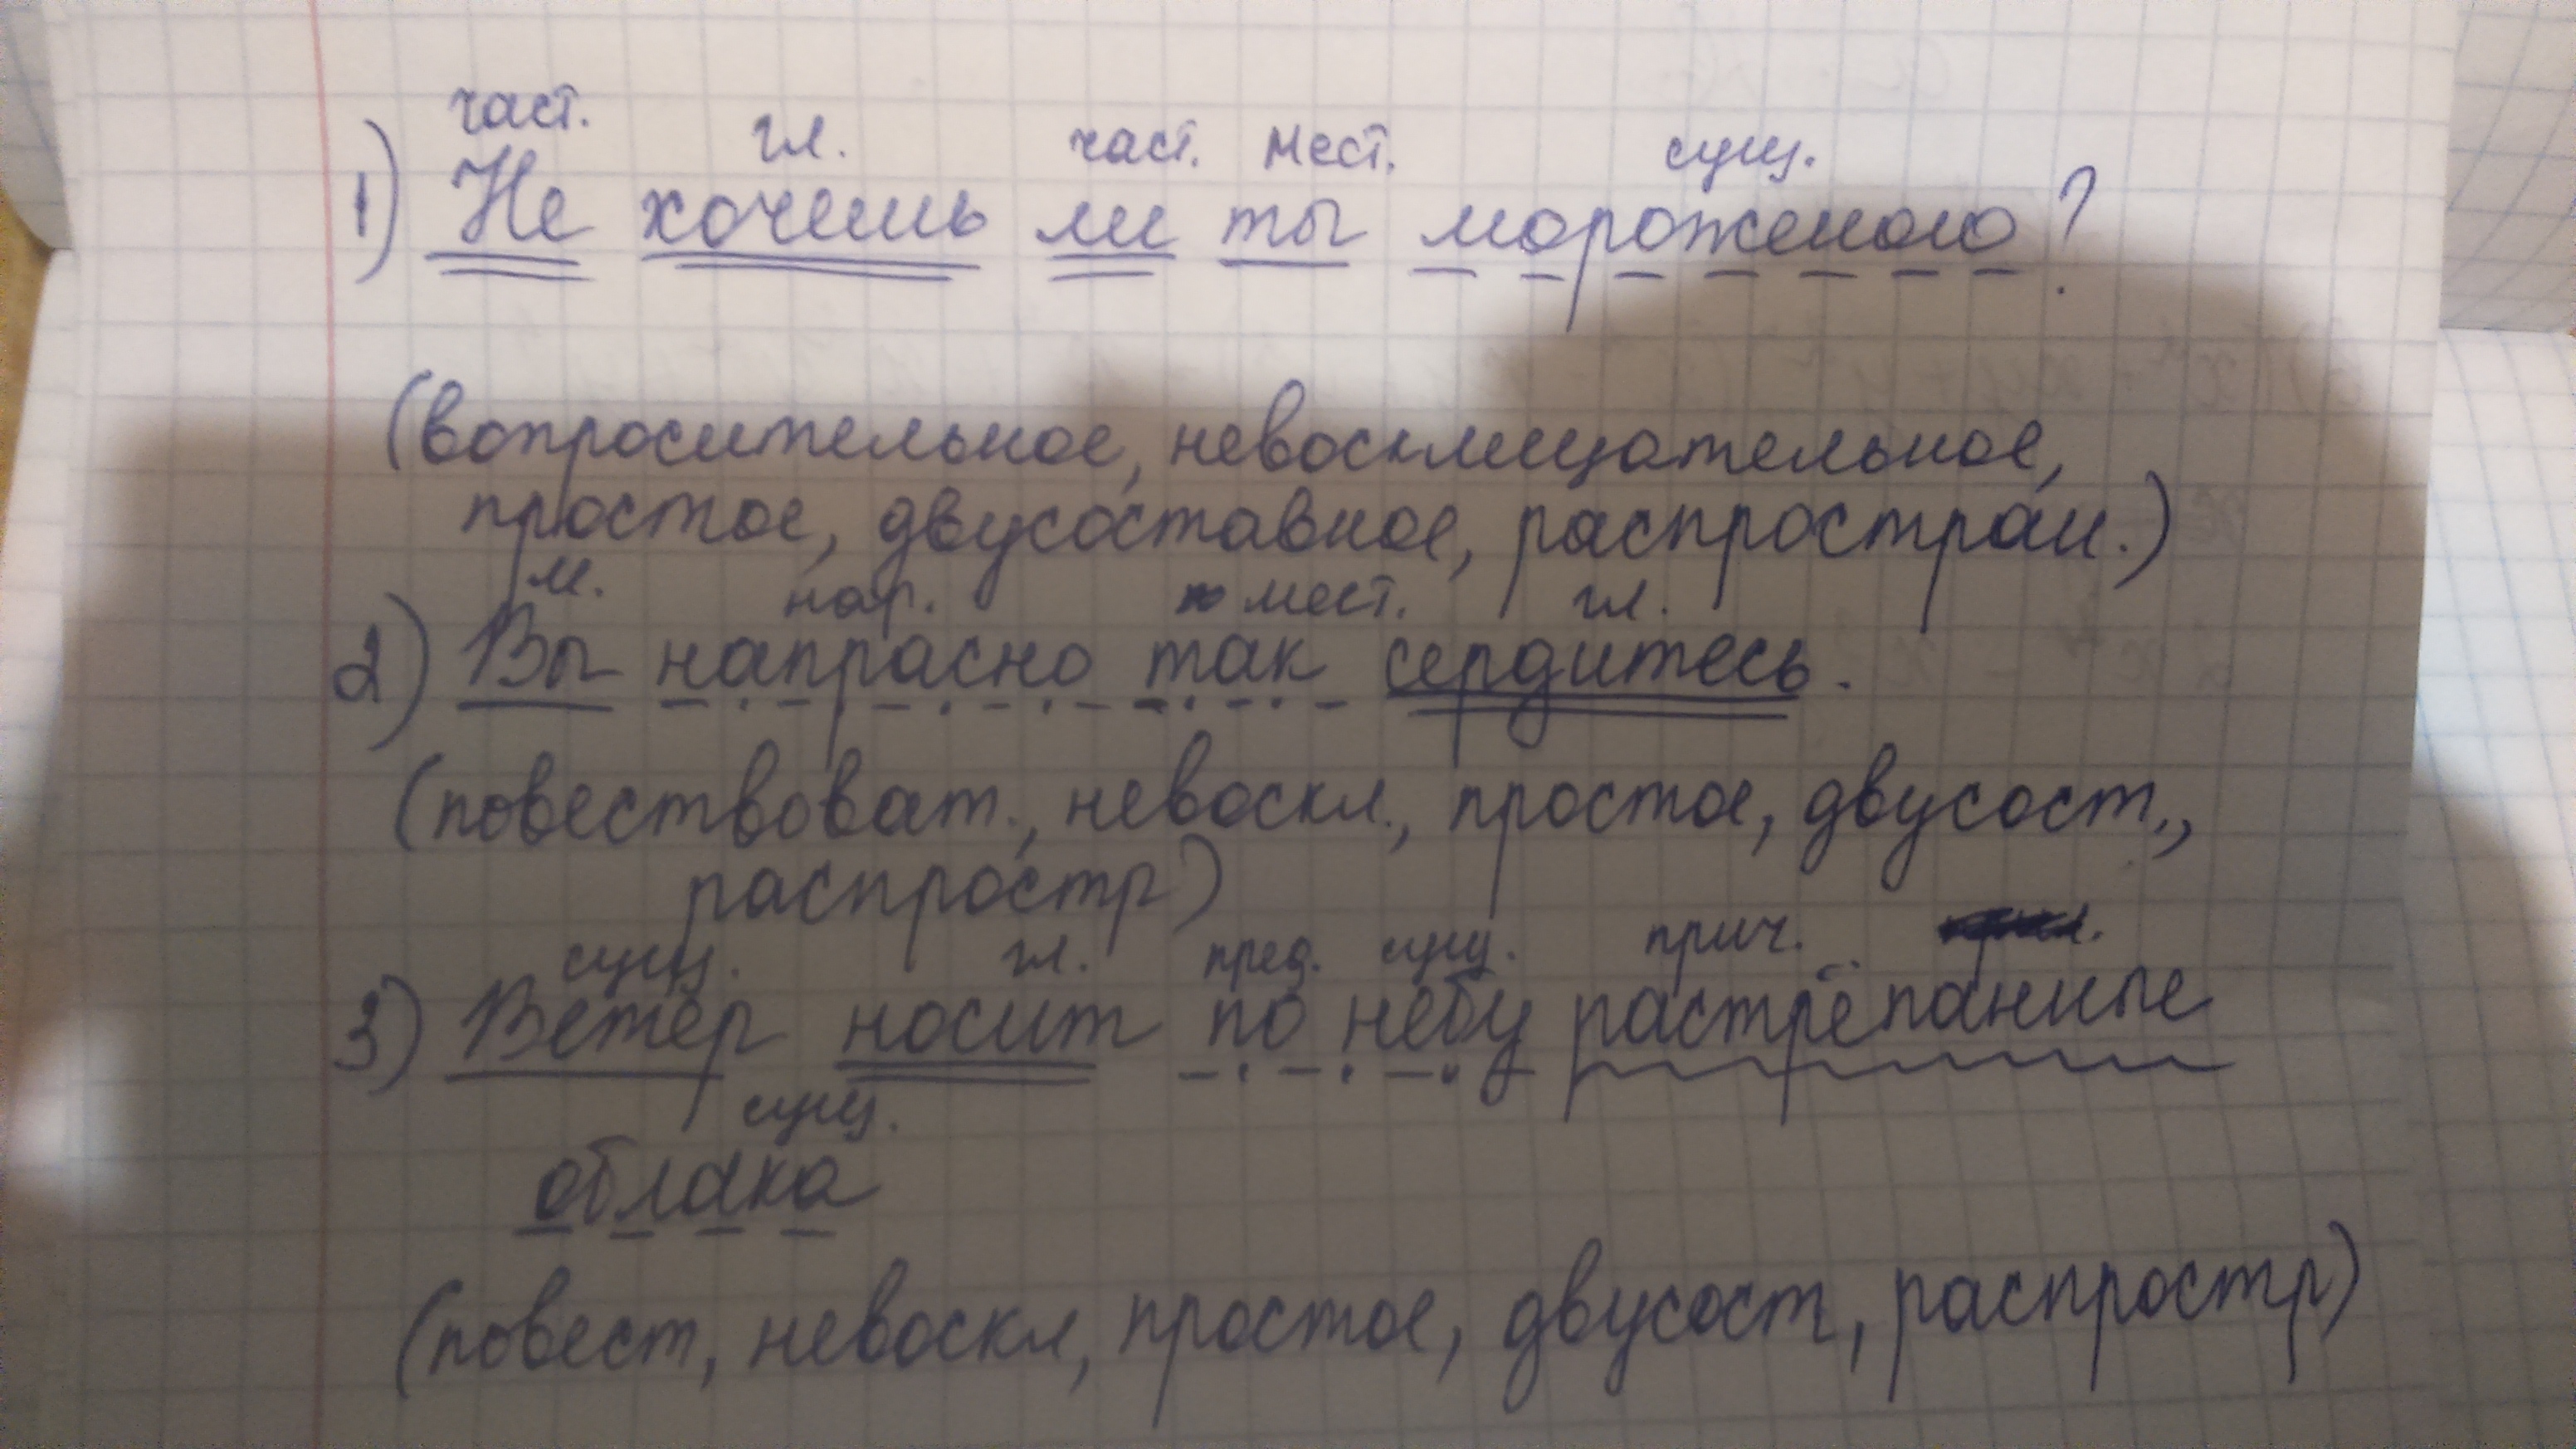 част. гл. част. мест. сущ.
1) Не хочешь ли ты мороженого?
(вопросительное, невосклицательное,
простое, двусоставное, распростран.)
м. нар. мест. гл.
2) Вы напрасно так сердитесь.
(повествоват., невоскл., простое, двусост.,
распростр)
сущ. гл. пред. сущ. прич.
3) Ветер носит по небу растрёпанные
сущ.
облака
(повест, невоскл, простое, двусост, распростр)